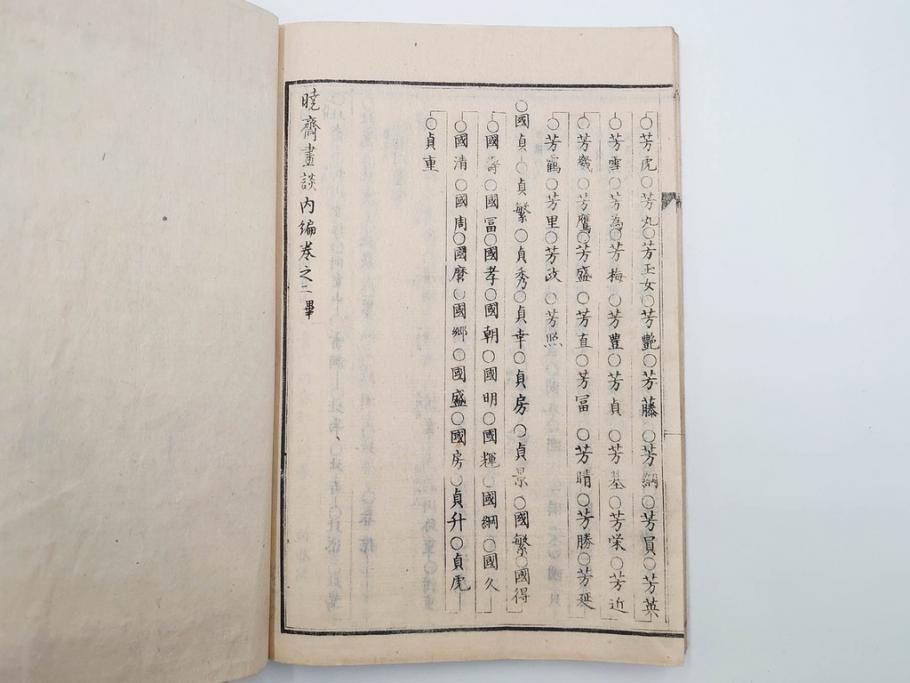 ○芳虎○芳丸○芳玉女○芳艶○芳藤○芳綱○芳員○芳英
○芳雪○芳為○芳梅○芳豊○芳貞○芳基○芳栄○芳近
○芳幾○芳鷹○芳盛○芳直○芳冨○芳晴○芳勝○芳延
○芳鶴○芳里○芳政○芳照
○國貞○貞繁○貞秀○貞幸○貞房○貞景○國繁○國得
○國壽○國冨○國孝○國朝○國明○國輝○國綱○國久
○國清○國周○國麿○國郷○國盛○國房○貞升○貞虎
○貞重
暁齋畫談内編巻之二畢